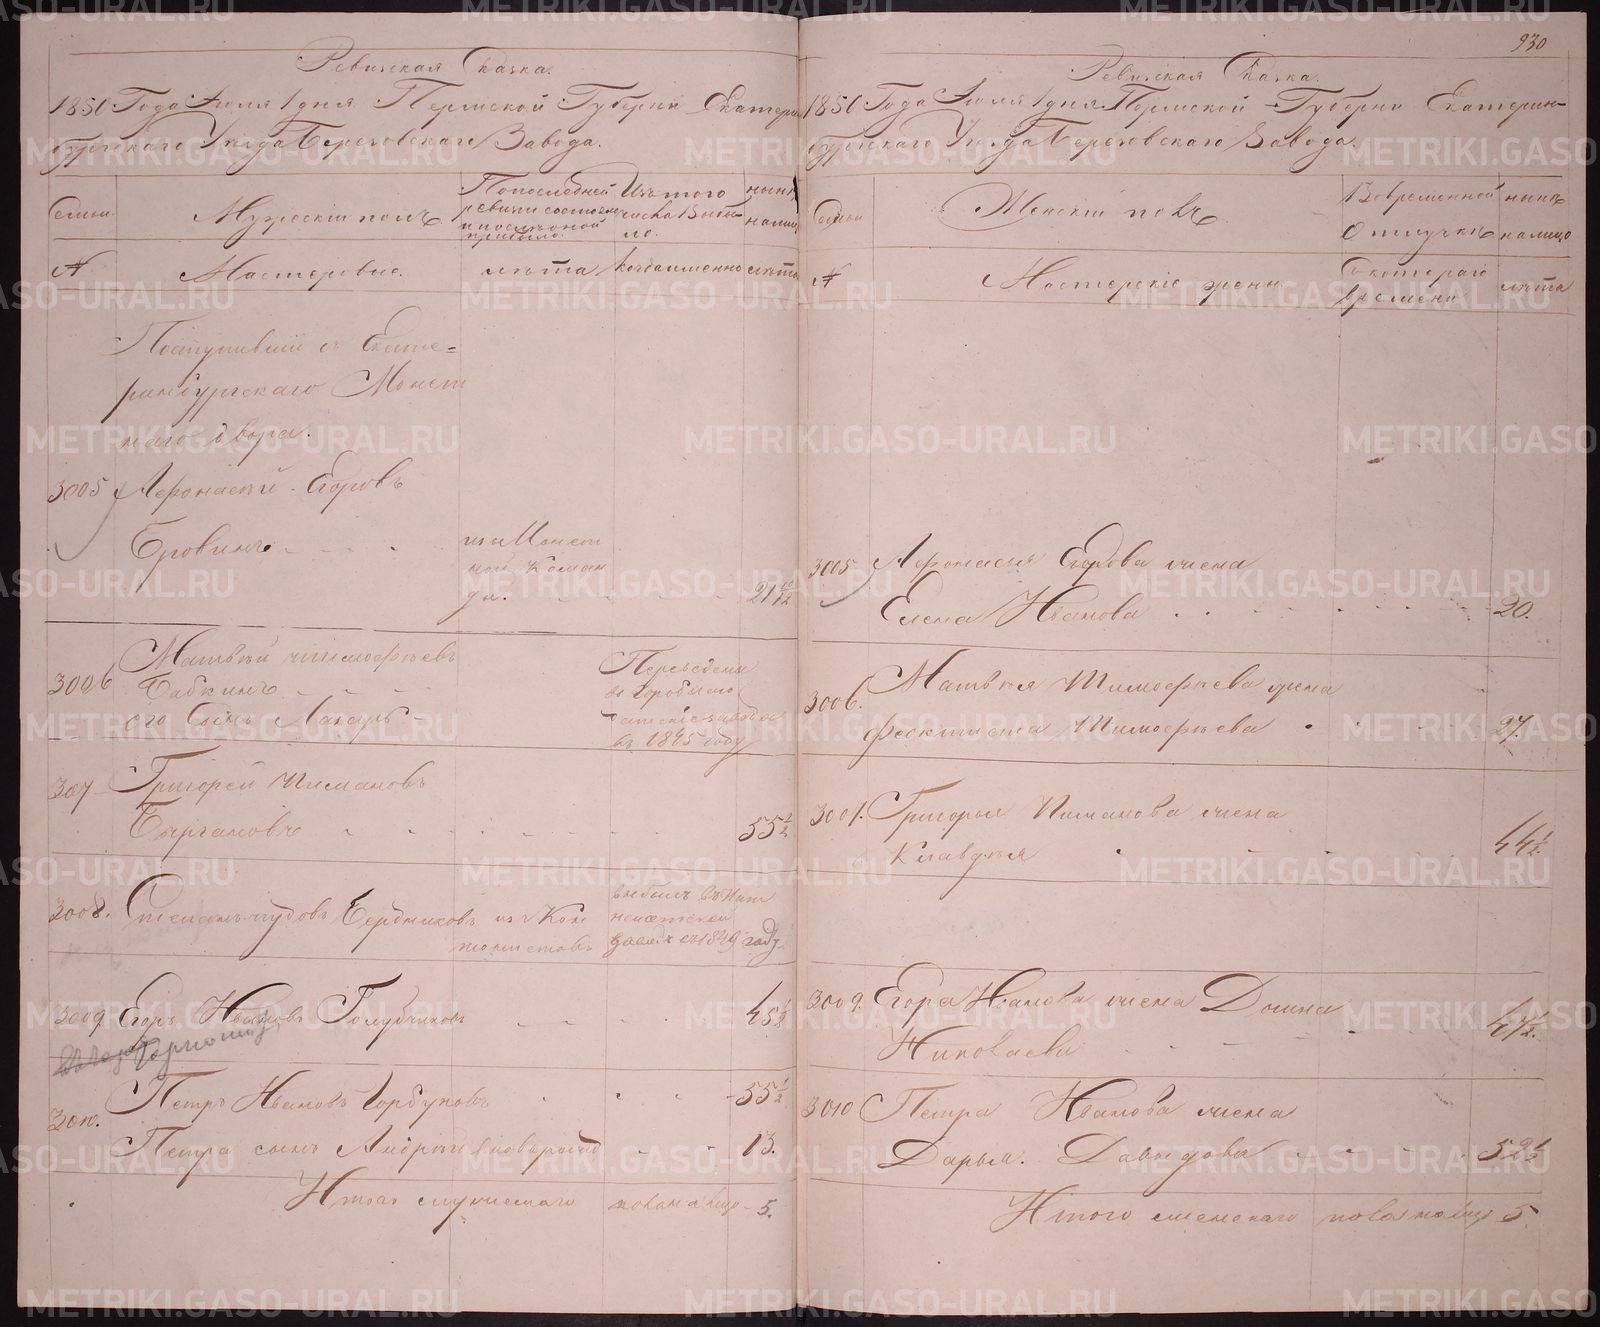 930
Ревизская Сказка.
1850 Года Июля 1 дня Пермской Губерни Екатерин
бургскаго Уезда Березовскаго Завода.
Семьи
Мужеский полъ
По последней
ревизии состояло
и после оной
прибыло
Изъ того
числа выбы-
ло.
ныне
налицо
№
Мастеровые.
лѣта
когда именно
лѣта
Поступивший съ Екате=
ринбургскаго Монет
наго двора.
3005 Афонасей Егоровъ
Бровинъ
изъ Монет
ной Коман
ды. 21 10/12
3006 Матвѣй Тимофѣевъ
Бабкинъ
его Сынъ Макаръ
Переведены
въ 1845 году
307 Григорей Пимановъ
Быргановъ 55 1/2
3008. Степанъ Титовъ Бердниковъ из Кон
тористовъ
выбылъ въ Ниж
неисетской
заводъ въ 1849 году
3009 Егоръ Ивановъ Голубчиковъ 45 1/2
3010. Петръ Ивановъ Горбуновъ 55 1/2
Петра сынъ Андрей Новорожд 13.
Итого мужескаго пола налицо 5.
Ревизская Сказка.
1850 Года Июля 1 дня Пермской Губерни Екатерин-
бургскаго Уезда Березовскаго Завода.
Семьи
Женский полъ
Во временной
Отлучке
ныне
налицо
№
Мастерские жены
Съ котораго
времени
лѣта
3005 Афонасья Егорова жена
Елена Иванова 20.
3006. Матвѣя Тимофѣева жена
Феоктиста Тимофѣева 27.
3007. Григорья Пиманова жена
Клавдѣя 44 1/2
3009. Егора Иванова жена Домна
Николаева 47 1/2.
3010 Петра Иванова жена
Дарья. Давыдова 52 1/2
Итого женскаго пола налицо 5
METRIKI.GASO-URAL.RU